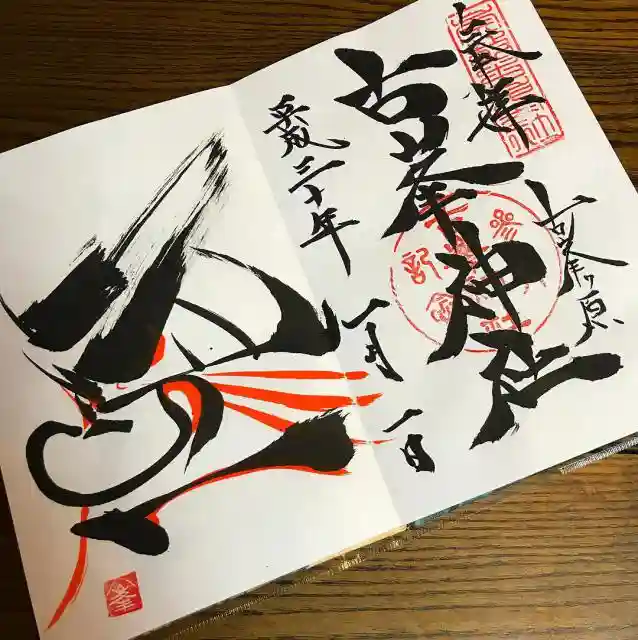 奉拝
古峯ヶ原
古峯神社
平成三十年
八月一日